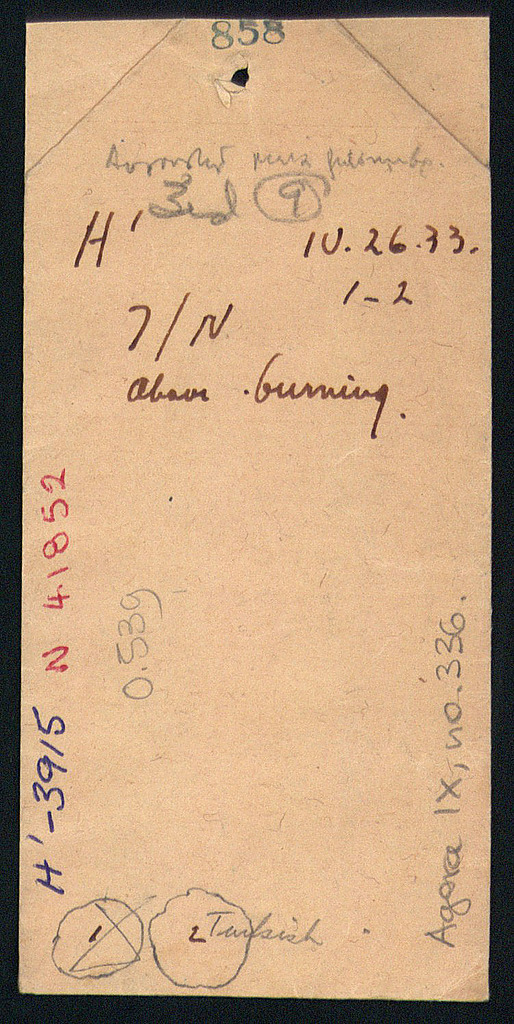 858
3rd 9
H' 10.26.33.
1-2
7/N
above burning.
H'-3915 N 41852
0.539
Agora IX, no. 336.
1 2 Turkish